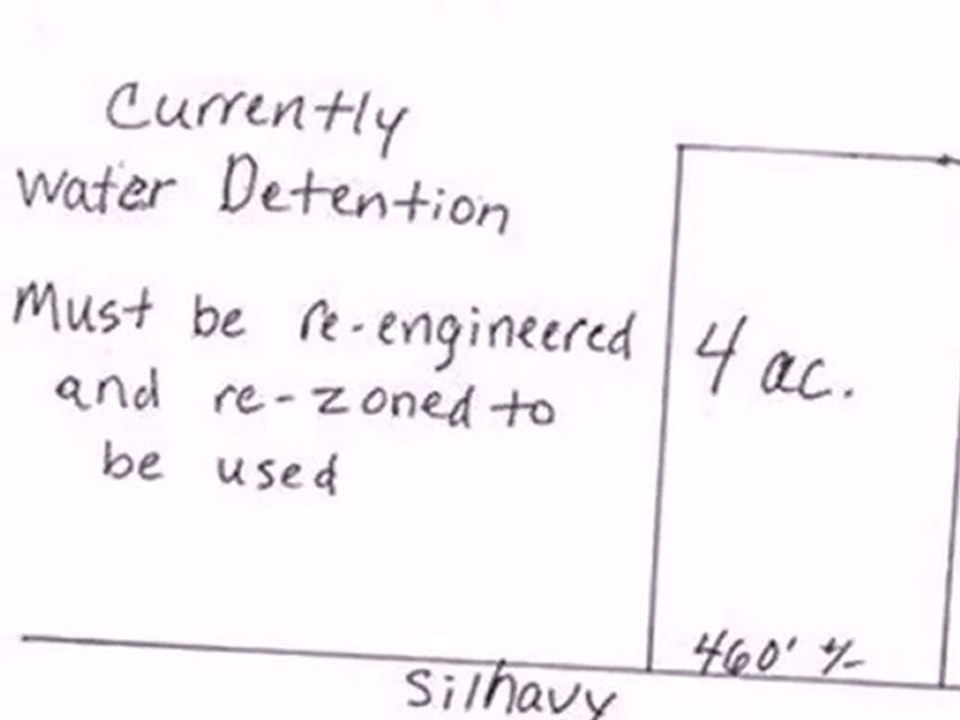 Currently
Water Detention
Must be re-engineered
and re-zoned to
be used
4 ac.
460' +/-
Silhavy